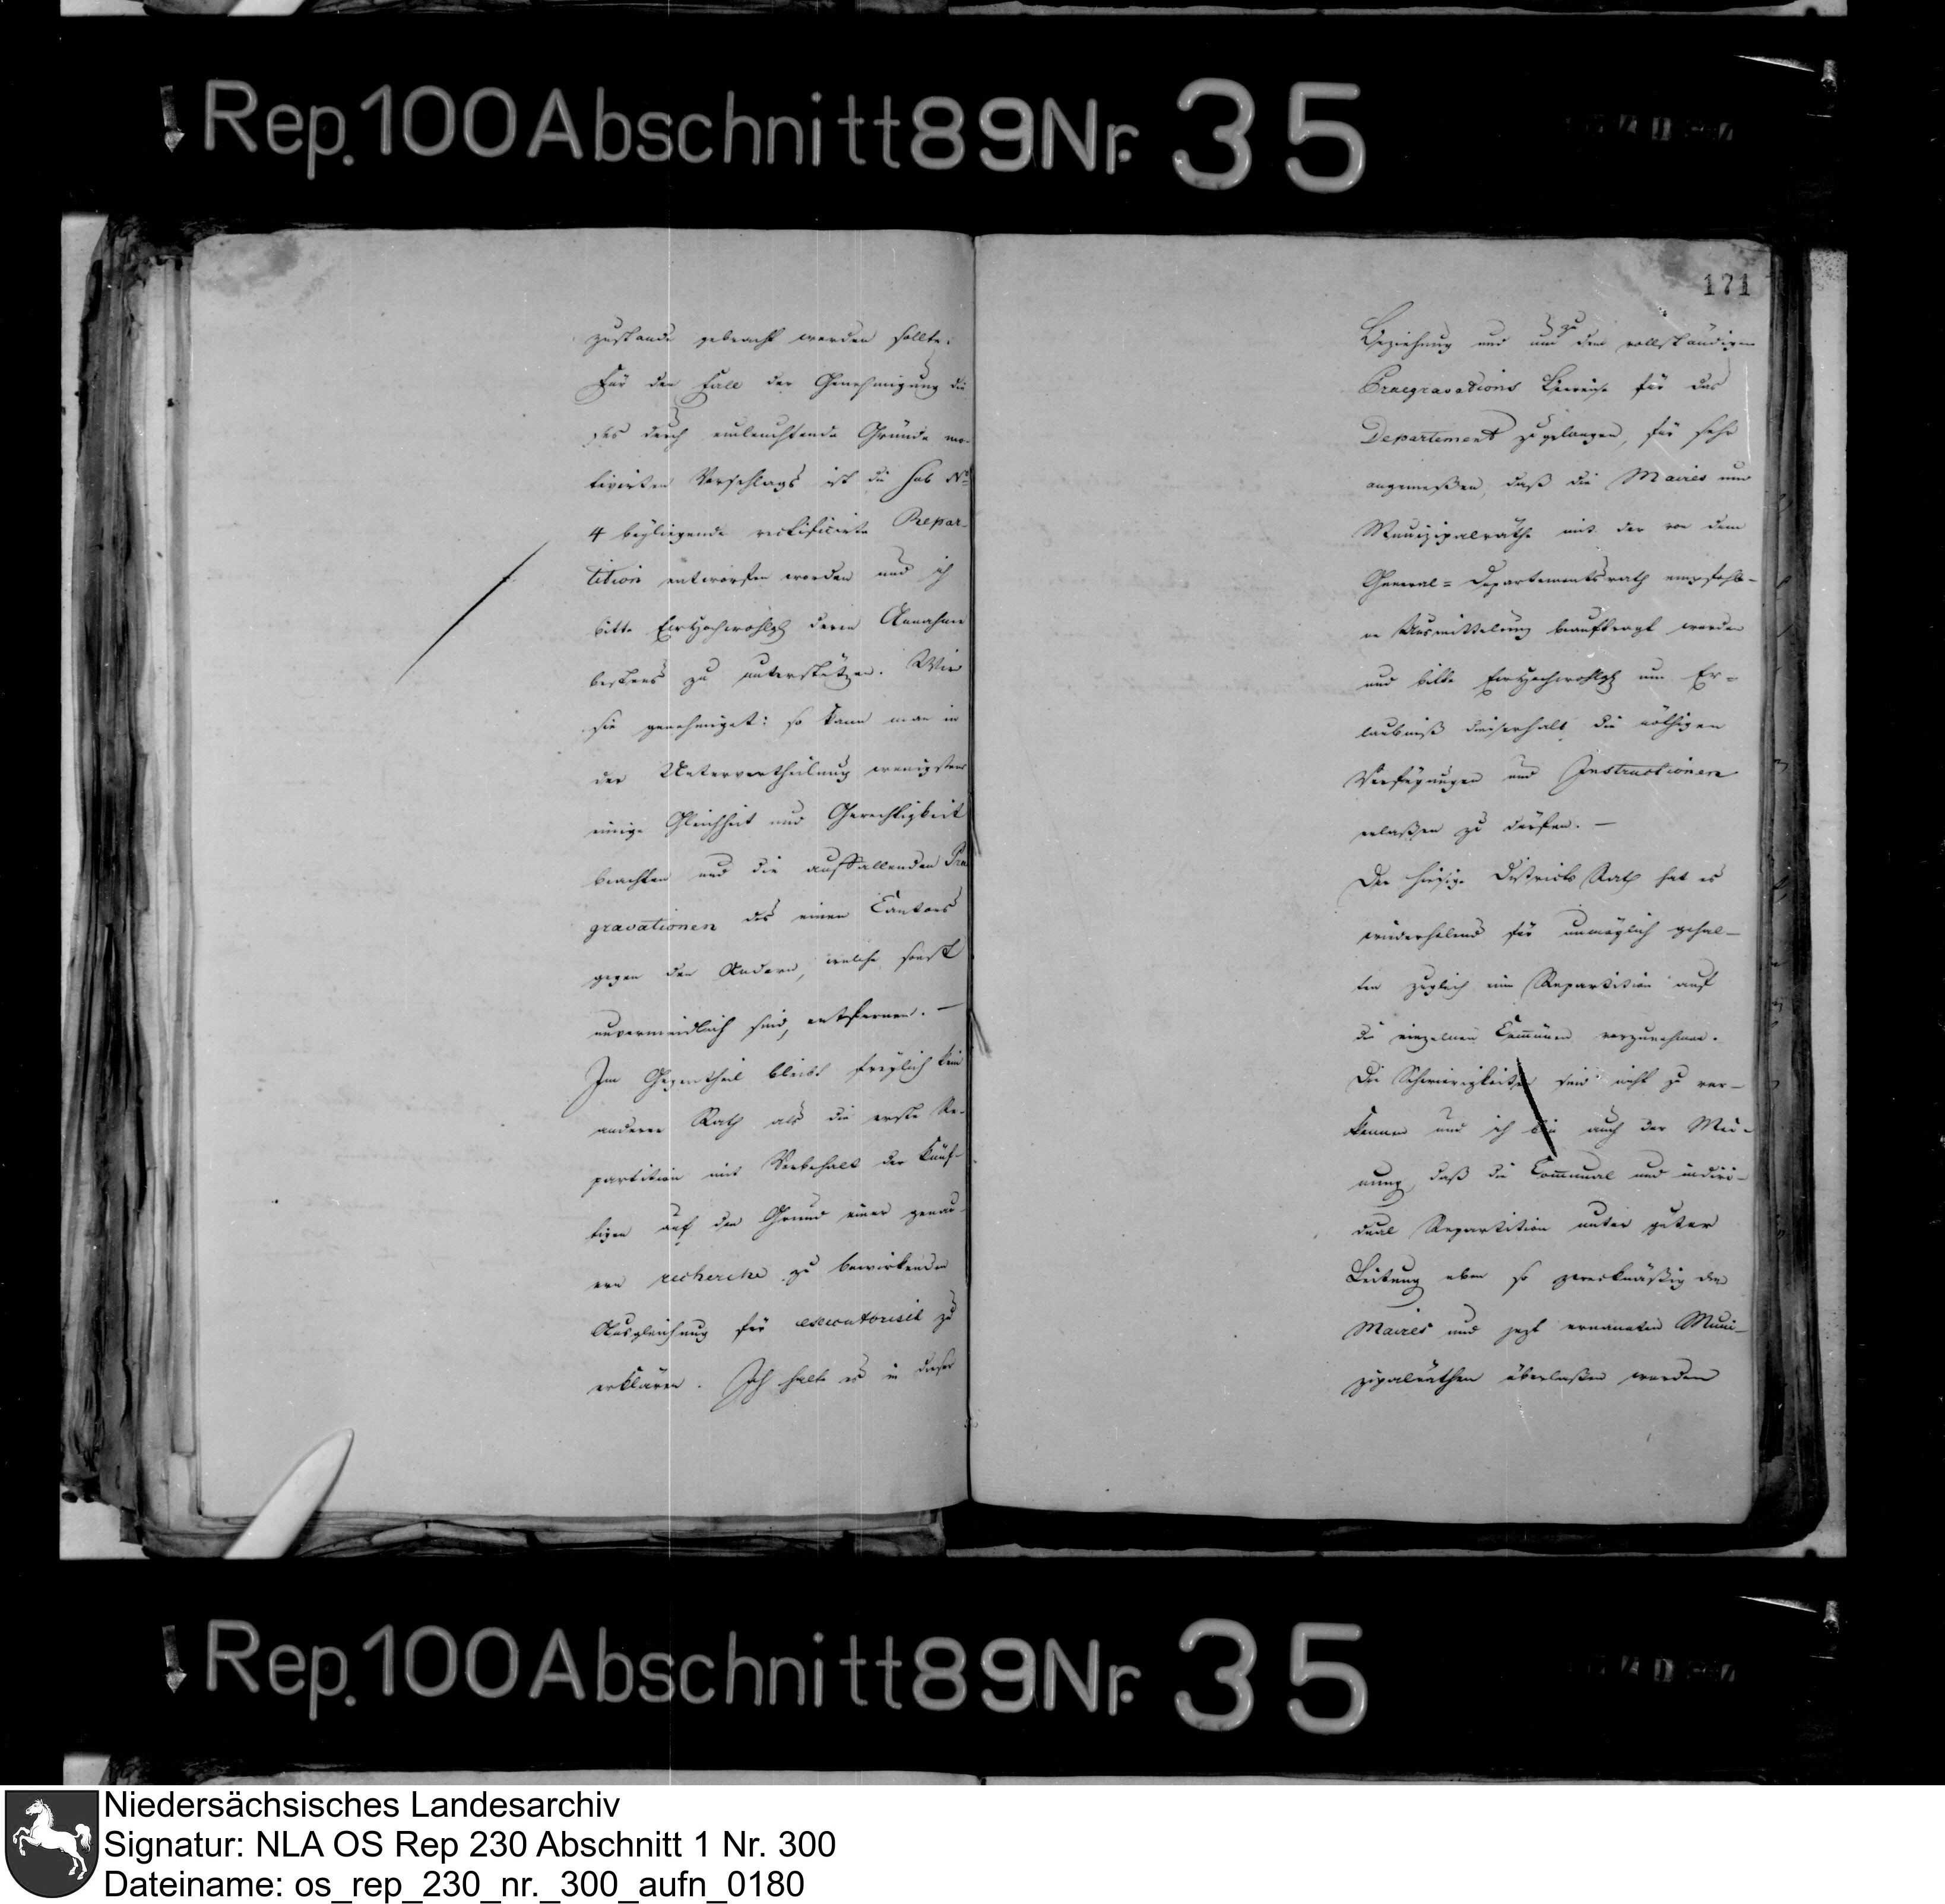 Rep. 100 Abschnitt 89 Nr. 35
zustande gebracht werden sollte.
Für den Fall der Genehmigung die
ses durch einleuchtende Gründe mo-
tivirten Vorschlags ist die sub No
4 beyliegende rectificirte Repar-
tition entworfen worden und ich
bitte Ew Hochwohlgb deren Annahme
bestens zu unterstützen. Wird
sie genehmiget: so kann man in
der Untervertheilung wenigstens
einige Gleichheit und Gerechtigkeit
beachten und die auffallenden Prae
gravationen des einen Cantons
gegen den Andern, welche sonst
unvermeidlich sind, entfernen. —
Im Gegentheil bleibt freylich kein
anderer Rath als die erste Re-
partition mit Vorbehalt der künf-
tigen auf den Grund einer genau-
ern recherche zu bewirkenden
Ausgleichung für executorisch zu
erklären. Ich halte es in dieser
171
Beziehung und um zu den vollständigen
Praegravations Beweise für das
Departement zu gelangen, für sehr
angemeßen, daß die Maires und
Munizipalräthe mit der von dem
General-Departementsrath empfohle-
ne Ausmittelung beauftragt werden
und bitte Ew Hochwohlgb um Er-
laubniß dieserhalb die nöthigen
Verfügungen und Instructionen
erlaßen zu dürfen. —
Der hiesige Districts Rath hat es
wiederholend für unmöglich gehal-
ten zugleich eine Repartition auf
die einzelnen Communen vorzunehmen.
Die Schwierigkeiten sind nicht zu ver-
kennen und ich bin auch der Mei-
nung, daß die Communal und indivi-
dual Repartition unter guter
Leitung eben so zweckmäßig den
Maires und jezt ernannten Muni-
zipalräthen überlaßen werden
Rep. 100 Abschnitt 89 Nr. 35
Niedersächsisches Landesarchiv
Signatur: NLA OS Rep 230 Abschnitt 1 Nr. 300
Dateiname: os_rep_230_nr._300_aufn_0180